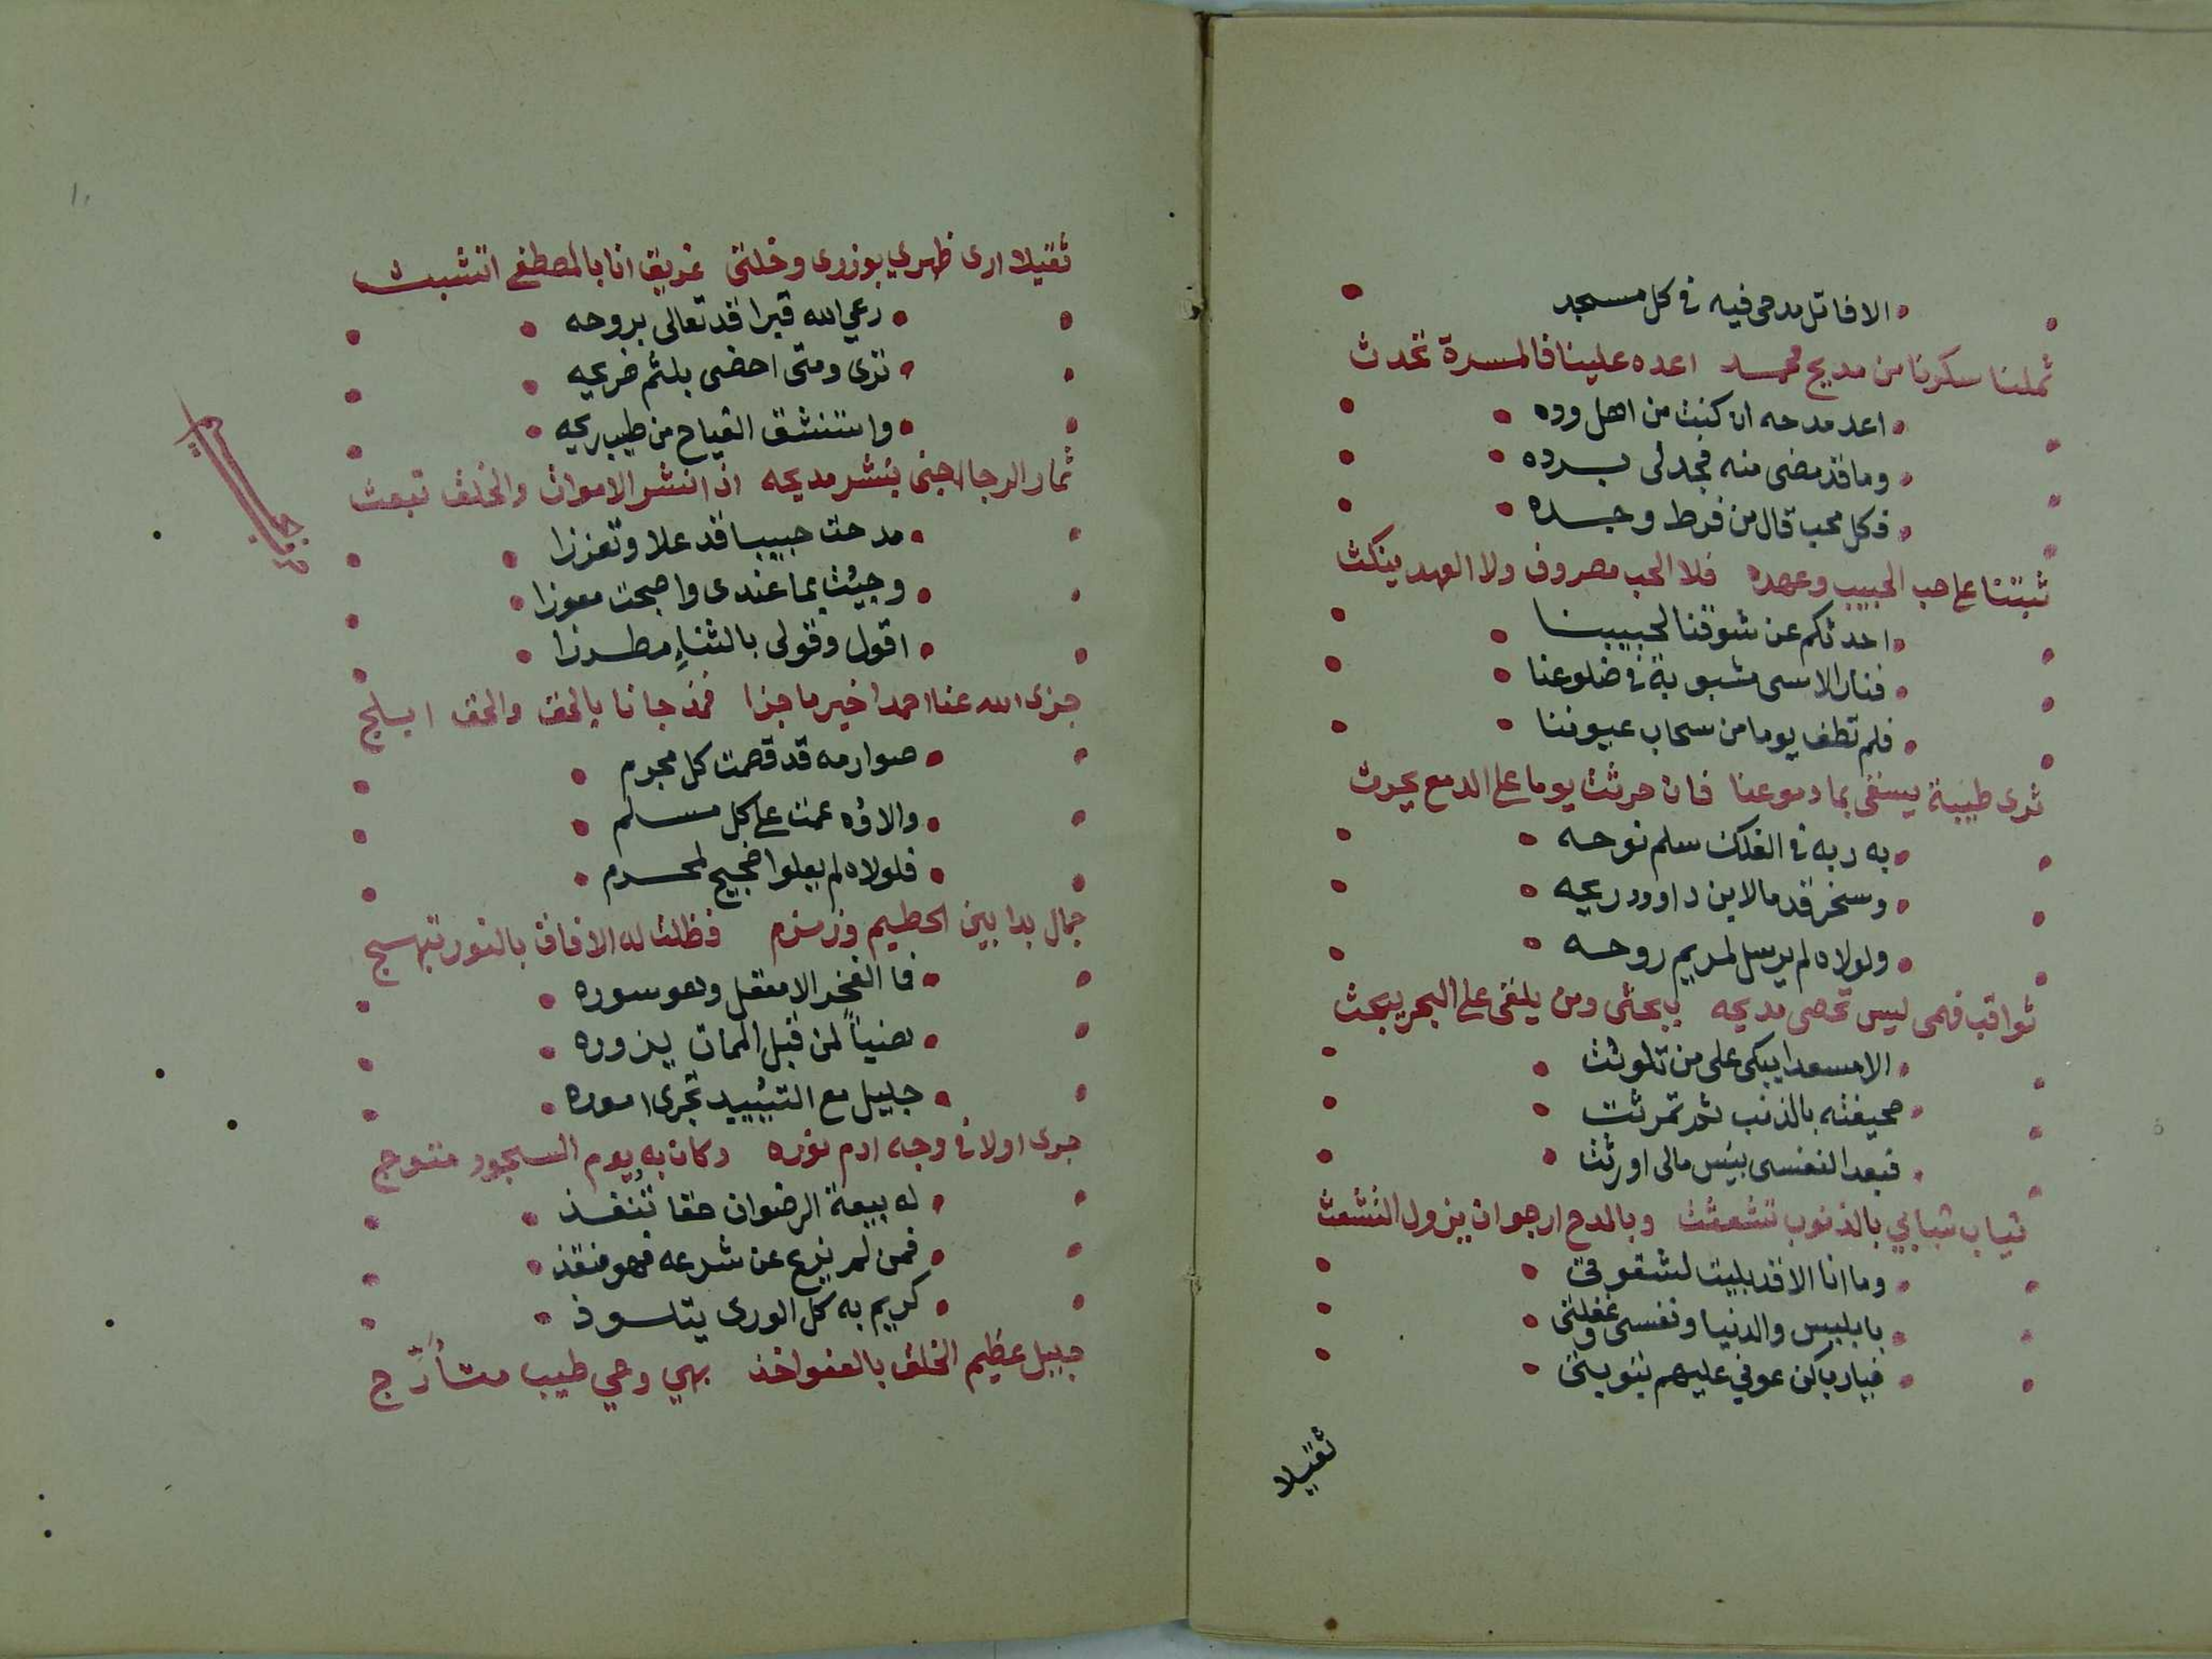 الا فاتل مدحى فيه فى كل مسجد
ثملنا سكونا من مديح محمد اعده علينا فالمسرة تحدث
اعد مدحه ان كنت من اهل وده
وما قد مضى منه فجد لى برده
فكل محب قال من فرط وجده
ثبتنا على حب الحبيب وعهده فلا الحب مصروف ولا العهد ينكث
احدثكم عن شوقنا لحبيبنا
فنار الاسى مشبوبة فى ضلوعنا
فلم تطف يوما من سحاب عيوننا
ثرى طيبة يسقى بما دموعنا فان حرثت يوما على الدمع يحرث
به ربه فى الفلك سلم نوحه
وسخر قدما لابن داوود ريحه
ولولاه لم يرسل لمريم روحه
ثواقب فهمى ليس تحصى مديحه ببحثى ومن يلقى على البحر يبحث
الا مسعدا يبكى على من تلوثت
صحيفته بالذنب ثم تمرثت
فبعدا لنفسى بئس مالى اورثت
ثياب شبابي بالذنوب تشعثت وبالمدح ارجوان يزول التشعث
وما انا الا قد بليت لشقوتى
بابليس والدنيا ونفسى وغفلتى
فيارب كن عونى عليهم بتوبتى
ثقيلا
١٠
ثقيلا ارى ظهري بوزرى وخلتى غريق انا بالمصطفى اتشبث
رعي الله قبرا قد تعالى بروحه
ترى ومتى احضى بلثم ضريحه
واستنشق الفياح من طيب ريحه
ثمار الرجا اجنى بنشر مديحه اذا نشر الاموات والخلق تبعث
حرف الجيم
مدحت حبيبا قد علا وتعززا
وجيئت بما عندى واصبحت معوزا
اقول وقولى بالثناءِ مطرزا
جزى الله عنا احمدا خير ما جزا فقد جانا بالحق والحق ابلج
صوارمه قد قصمت كل مجرم
والاؤه عمت على كل مسلم
فلولاه لم يعلوا ضجيج لمحرم
جمال بدا بين الحطيم وزمزم فظلت له الافاق بالنور تبهج
فما الفخر الا معقل وهو سوره
هنياً لمن قبل الممات يزوره
جليل مع التييد تجرى اموره
جرى اولا فى وجه ادم نوره وكان به يوم السجود متوج
له بيعة الرضوان حقا تُنفذ
فمن لم يزغ عن شرعه فهو منقذ
كريم به كل الورى يتلوذ
جليل عظيم الخلق بالعفو اخذ بهي وحي طيب متأرّج